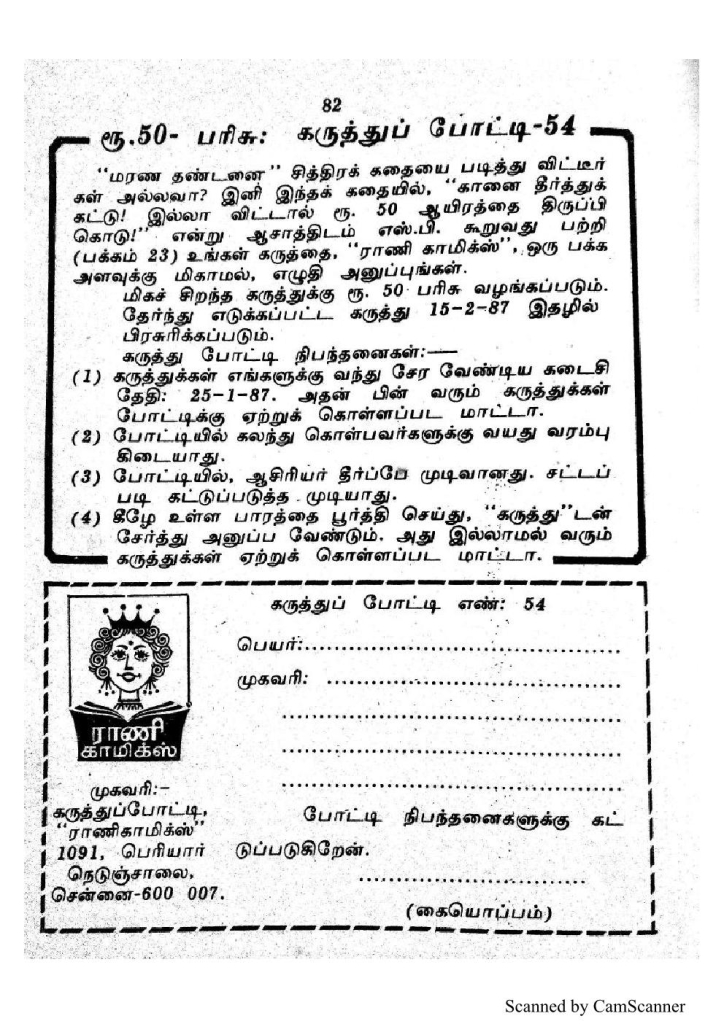 82
ரூ.50- பரிசு: கருத்துப் போட்டி-54
"மரண தண்டனை" சித்திரக் கதையை படித்து விட்டீர்
கள் அல்லவா? இனி இந்தக் கதையில், "கானை தீர்த்துக்
கட்டு! இல்லா விட்டால் ரூ. 50 ஆயிரத்தை திருப்பி
கொடு!" என்று ஆசாத்திடம் எஸ்.பி. கூறுவது பற்றி
(பக்கம் 23) உங்கள் கருத்தை, "ராணி காமிக்ஸ்", ஒரு பக்க
அளவுக்கு மிகாமல், எழுதி அனுப்புங்கள்.
மிகச் சிறந்த கருத்துக்கு ரூ. 50 பரிசு வழங்கப்படும்.
தேர்ந்து எடுக்கப்பட்ட கருத்து 15-2-87 இதழில்
பிரசுரிக்கப்படும்.
கருத்து போட்டி நிபந்தனைகள்:—
(1) கருத்துக்கள் எங்களுக்கு வந்து சேர வேண்டிய கடைசி
தேதி: 25-1-87. அதன் பின் வரும் கருத்துக்கள்
போட்டிக்கு ஏற்றுக் கொள்ளப்பட மாட்டா.
(2) போட்டியில் கலந்து கொள்பவர்களுக்கு வயது வரம்பு
கிடையாது.
(3) போட்டியில், ஆசிரியர் தீர்ப்பே முடிவானது. சட்டப்
படி கட்டுப்படுத்த முடியாது.
(4) கீழே உள்ள பாரத்தை பூர்த்தி செய்து, "கருத்து"டன்
சேர்த்து அனுப்ப வேண்டும். அது இல்லாமல் வரும்
கருத்துக்கள் ஏற்றுக் கொள்ளப்பட மாட்டா.
கருத்துப் போட்டி எண்: 54
பெயர்:..........................................
முகவரி: .......................................
.............................................
.............................................
.............................................
ராணி
காமிக்ஸ்
முகவரி:-
கருத்துப்போட்டி,
"ராணிகாமிக்ஸ்"
1091, பெரியார்
நெடுஞ்சாலை,
சென்னை-600 007.
போட்டி நிபந்தனைகளுக்கு கட்
டுப்படுகிறேன்.
..............................
(கையொப்பம்)
Scanned by CamScanner